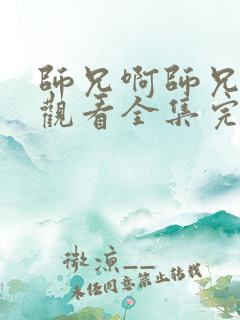 師兄啊師兄
觀看全集完
微凉__
未任同意禁止转载